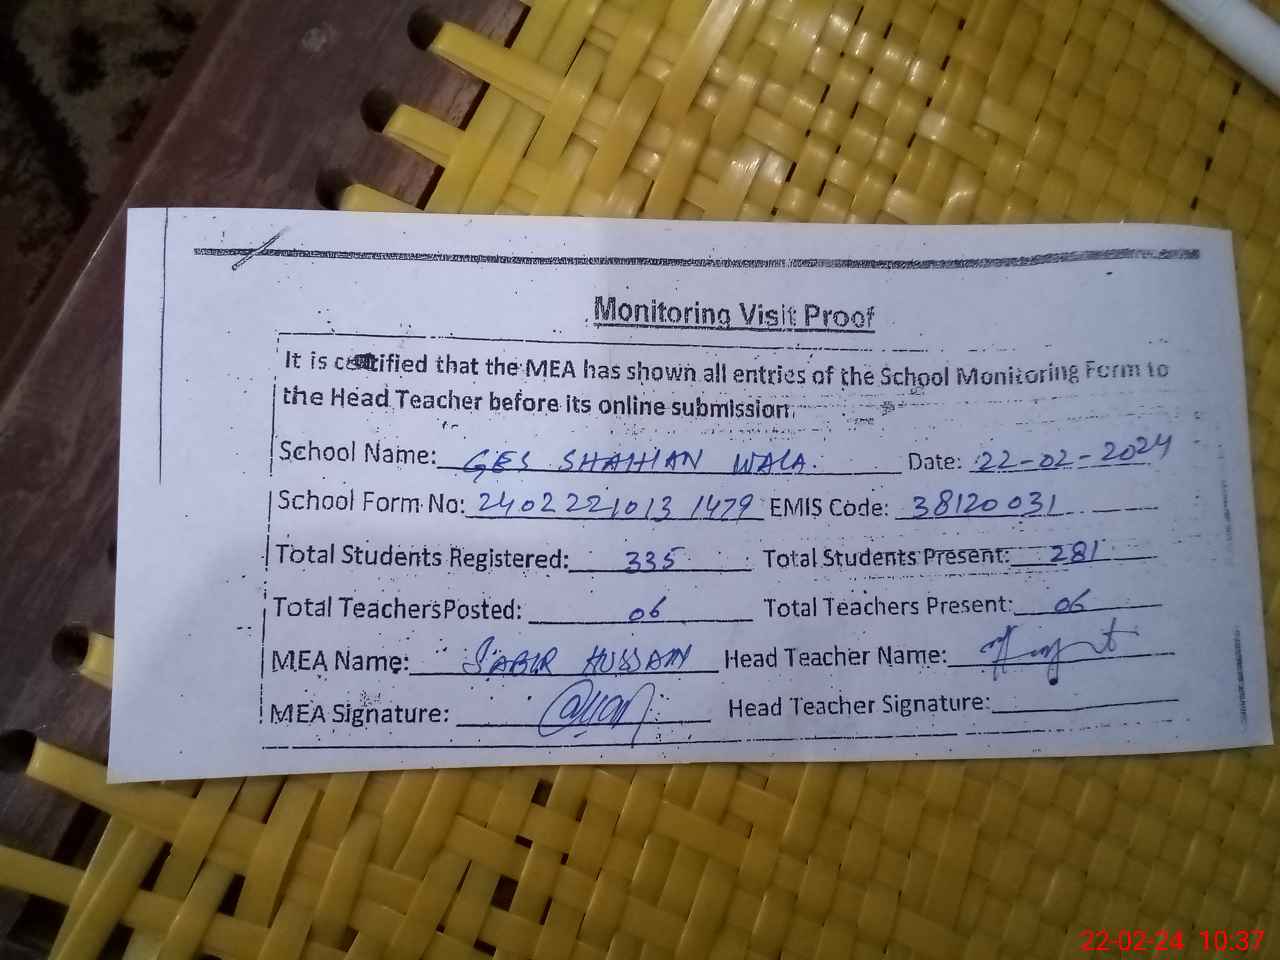 Monitoring Visit Proof
It is certified that the MEA has shown all entries of the School Monitoring Form to
the Head Teacher before its online submission.
School Name: GES SHAHIAN WALA. Date: 22-02-2024
School Form No: 2402221013 1479 EMIS Code: 38120031
Total Students Registered: 335 Total Students Present: 281
Total Teachers Posted: 06 Total Teachers Present: 06
MEA Name: SABIR HUSSAIN Head Teacher Name:
MEA Signature: Head Teacher Signature:
22-02-24 10:37